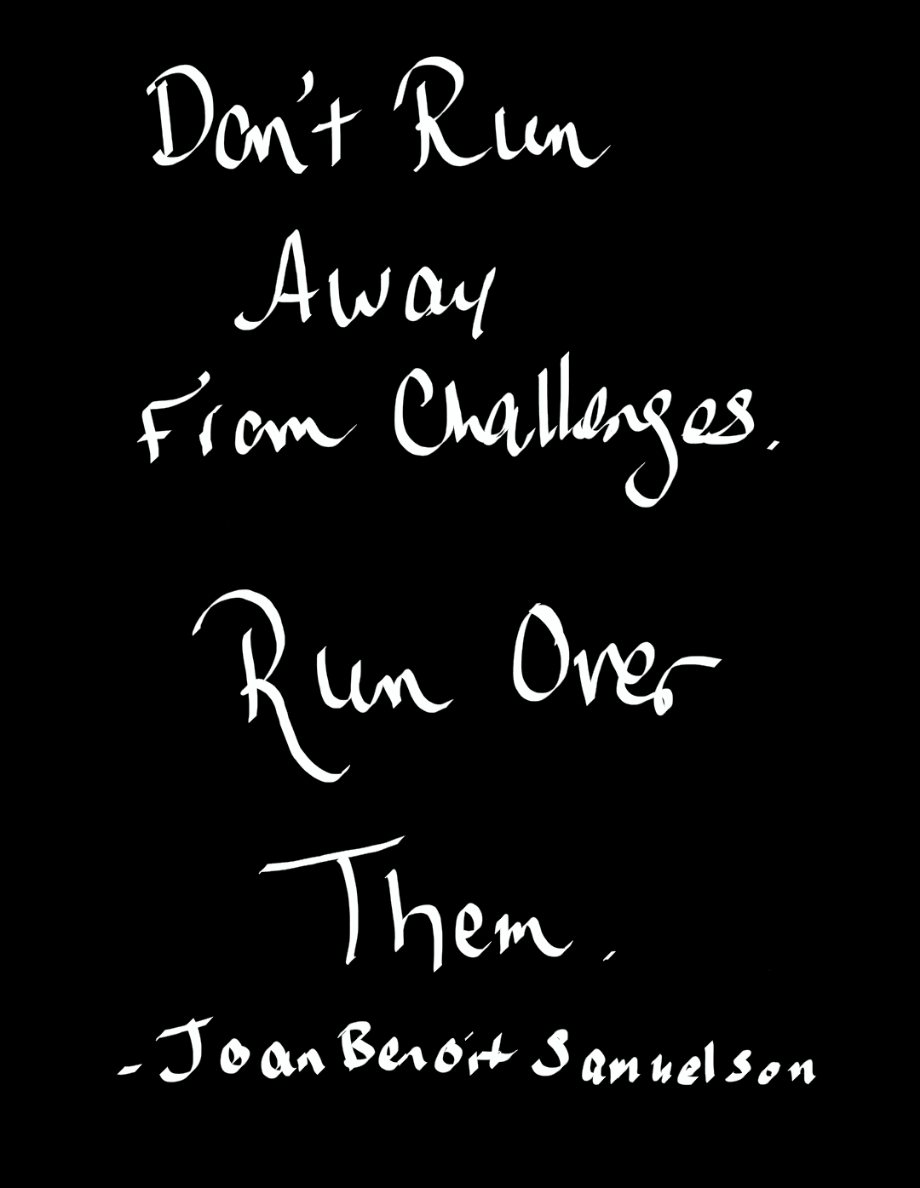 Don't Run
Away
From Challenges.
Run Over
Them.
- Joan Benoit Samuelson